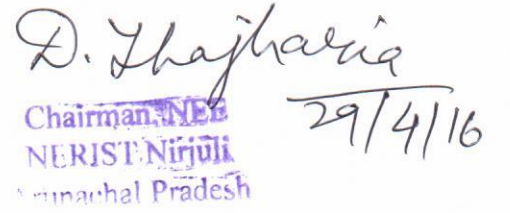 D. Jhajharia
29/4/16
Chairman, NEE
NERIST Nirjuli
Arunachal Pradesh